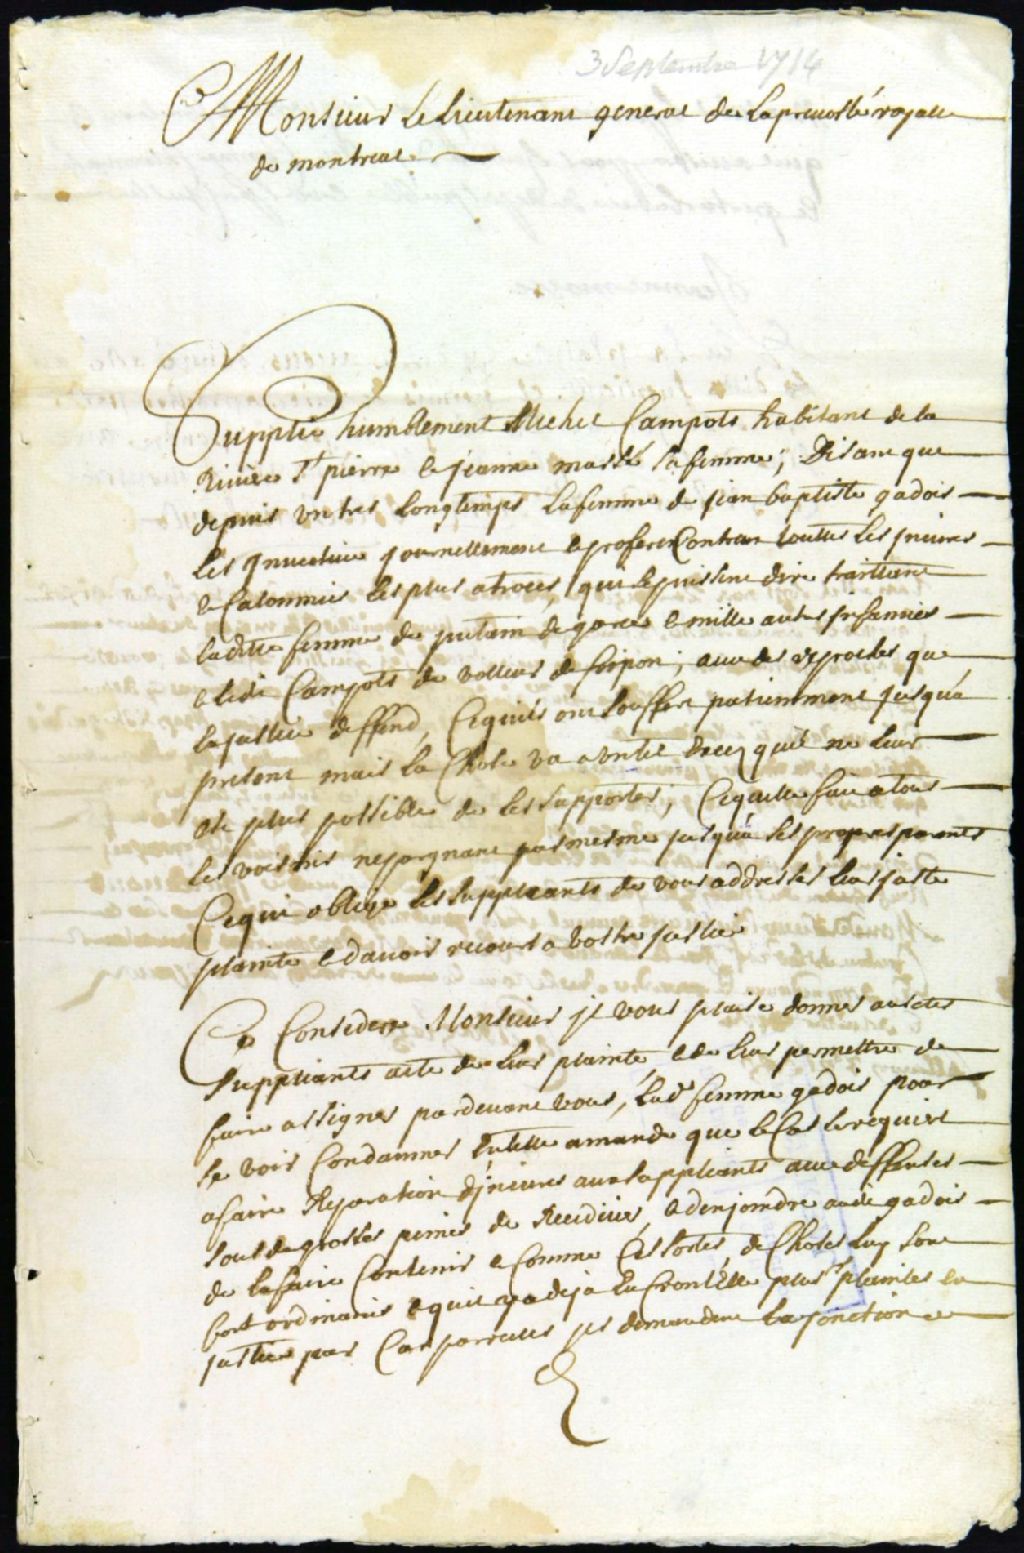 3 Septembre 1714
A Monsieur Le Lieutenant general de La prevosté royalle
de montreal
Supplie humblement Michel Campots habitant de la
Riviere St pierre et jeanne massé sa femme; Disant que
depuis un tres Longtemps La femme de jean baptiste gadois
Les Invective journellement et profere Contre toutes Les injures
et Calomnies Les plus atroces, qui se puissent dire traittant
laditte femme de putain de garce et mille autres infamies
et ledit Campots de volleur de fripon; avec des reproches que
la justice deffend, Cequils ont souffert patiemment jusqua
present mais la Chose va a un tel exces quil ne leur
est plus possible de les supporter; Cequelle fait a tous
les voisins nepargnant pas mesme jusqua ses propres parents
Cequi oblige les supplicants de vous addresser leur juste
plainte et davoir recours a vostre justice
Ce Consideré Monsieur jl vous plaise donner ausdits
suppliants acte de leur plainte, et de leur permettre de
faire assigner pardevant vous, lade femme gadois pour
se voir Condamner en telle amande que le Cas le requiert
a faire Reparation dinjures aux suppliants avec deffenses
sous de grosses peines de Recidiver, et denjoindre audit gadois
de la faire Contenir et Comme Ces sortes de Choses luy sont
fort ordinaires et quil y a deja Eu Contr'Elle plusrs plaintes en
justice pour Cas pareilles jls demandent la jonction